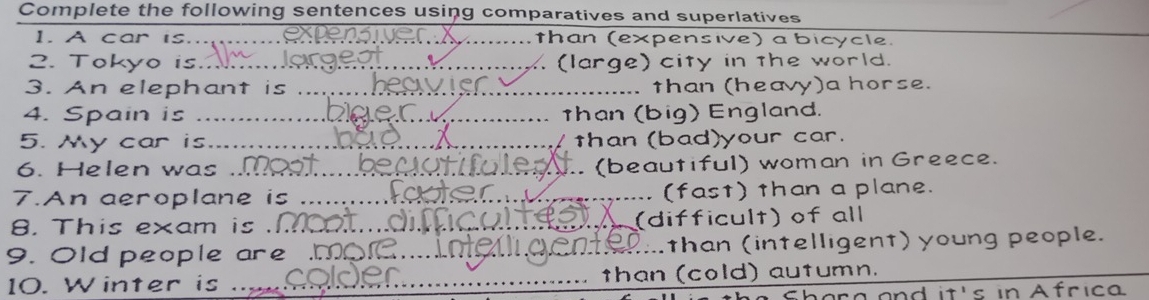 Complete the following sentences using comparatives and superlatives
1. A car is.......expensiver.X.......than (expensive) a bicycle.
2. Tokyo is...the...largest........... (large) city in the world.
3. An elephant is .......heavier............... than (heavy)a horse.
4. Spain is ..............biger............ than (big) England.
5. My car is..............bad....X........ than (bad)your car.
6. Helen was ..most....beautifulest.X.. (beautiful) woman in Greece.
7.An aeroplane is ..........faster............. (fast) than a plane.
8. This exam is .most..difficultest X (difficult) of all
9. Old people are .more...intelligenter...than (intelligent) young people.
10. Winter is ......colder................ than (cold) autumn.
and it's in Africa